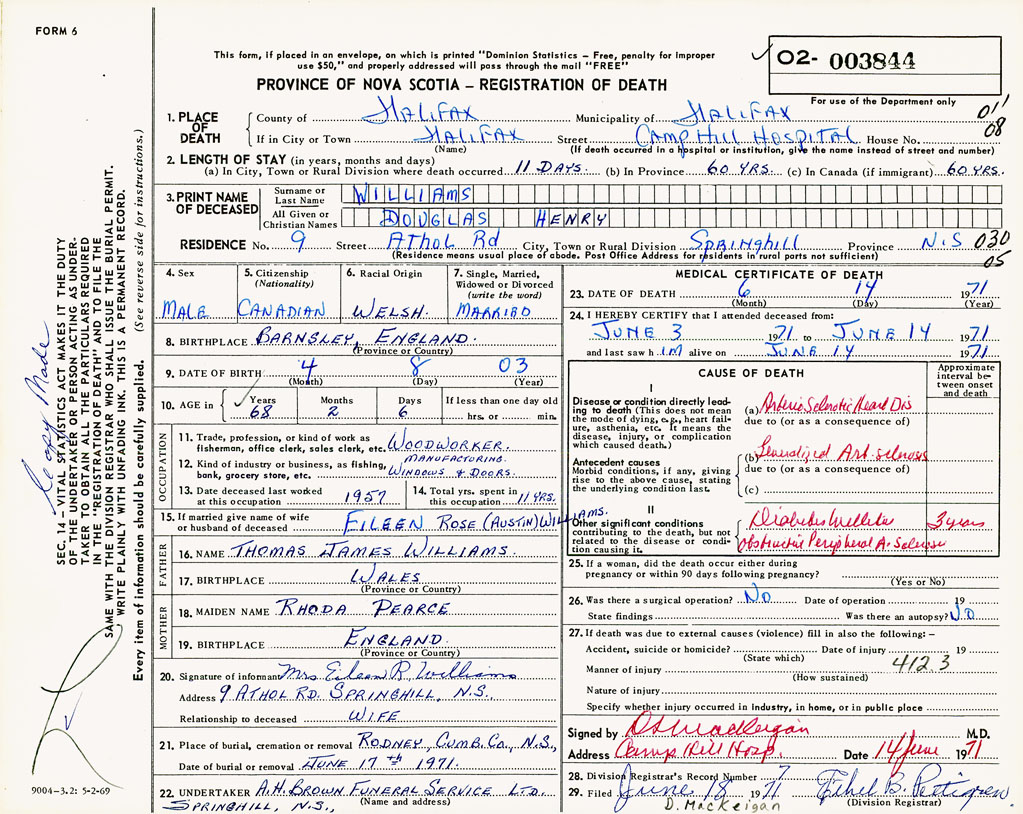 FORM 6
This form, if placed in an envelope, on which is printed "Dominion Statistics – Free, penalty for improper
use $50," and properly addressed will pass through the mail "FREE"
PROVINCE OF NOVA SCOTIA – REGISTRATION OF DEATH
O2- 003844
For use of the Department only
011
08
1. PLACE OF DEATH
County of HALIFAX Municipality of HALIFAX
If in City or Town HALIFAX Street CAMP HILL HOSPITAL House No.
(Name) (If death occurred in a hospital or institution, give the name instead of street and number)
2. LENGTH OF STAY (in years, months and days)
(a) In City, Town or Rural Division where death occurred 11 DAYS. (b) In Province 60 YRS. (c) In Canada (if immigrant) 60 YRS.
3. PRINT NAME OF DECEASED
Surname or Last Name WILLIAMS
All Given or Christian Names DOUGLAS HENRY
RESIDENCE No. 9 Street Athol Rd City, Town or Rural Division SPRINGHILL Province N.S 030
(Residence means usual place of abode. Post Office Address for residents in rural parts not sufficient) 05
4. Sex
MALE
5. Citizenship (Nationality)
CANADIAN
6. Racial Origin
WELSH.
7. Single, Married, Widowed or Divorced (write the word)
MARRIED
8. BIRTHPLACE BARNSLEY, ENGLAND.
(Province or Country)
9. DATE OF BIRTH 4 8 03
(Month) (Day) (Year)
10. AGE in
Years Months Days If less than one day old
68 2 6 hrs. or min.
OCCUPATION
11. Trade, profession, or kind of work as fisherman, office clerk, sales clerk, etc. WOODWORKER.
12. Kind of industry or business, as fishing, bank, grocery store, etc. MANUFACTURING. WINDOWS & DOORS.
13. Date deceased last worked at this occupation 1957
14. Total yrs. spent in this occupation 11 YRS.
15. If married give name of wife or husband of deceased EILEEN ROSE (AUSTIN) WILLIAMS.
FATHER
16. NAME THOMAS JAMES WILLIAMS.
17. BIRTHPLACE WALES
(Province or Country)
MOTHER
18. MAIDEN NAME RHODA PEARCE
19. BIRTHPLACE ENGLAND.
(Province or Country)
20. Signature of informant Mrs Eileen R. Williams
Address 9 ATHOL RD. SPRINGHILL, N.S.,
Relationship to deceased WIFE
21. Place of burial, cremation or removal RODNEY, CUMB. CO., N.S.,
Date of burial or removal JUNE 17th 1971.
22. UNDERTAKER A.H. BROWN FUNERAL SERVICE LTD.
(Name and address)
SPRINGHILL, N.S.,
MEDICAL CERTIFICATE OF DEATH
23. DATE OF DEATH 6 14 1971
(Month) (Day) (Year)
24. I HEREBY CERTIFY that I attended deceased from:
JUNE 3 1971 to JUNE 14 1971
and last saw h im alive on JUNE 14 1971
CAUSE OF DEATH
Approximate interval between onset and death
I
Disease or condition directly leading to death (This does not mean the mode of dying, e.g., heart failure, asthenia, etc. It means the disease, injury, or complication which caused death.)
(a) Arterio Sclerotic Heart Dis
due to (or as a consequence of)
Antecedent causes
Morbid conditions, if any, giving rise to the above cause, stating the underlying condition last.
(b) Generalized Art. sclerosis
due to (or as a consequence of)
(c)
II
Other significant conditions contributing to the death, but not related to the disease or condition causing it.
Diabetes Mellitus 3 years
Obstructive Peripheral A. Sclerosis
25. If a woman, did the death occur either during
pregnancy or within 90 days following pregnancy?
(Yes or No)
26. Was there a surgical operation? NO Date of operation 19
State findings Was there an autopsy? NO
27. If death was due to external causes (violence) fill in also the following: –
Accident, suicide or homicide? Date of injury 19
(State which)
Manner of injury 412 3
(How sustained)
Nature of injury
Specify whether injury occurred in industry, in home, or in public place
Signed by D MacKeigan M.D.
Address Camp Hill Hosp. Date 14 June 1971
28. Division Registrar's Record Number 7
29. Filed June 18 1971 Ethel B. Pettigrew
D. MacKeigan (Division Registrar)
Copy Made
SEC. 14 – VITAL STATISTICS ACT MAKES IT THE DUTY
OF THE UNDERTAKER OR PERSON ACTING AS UNDERTAKER TO OBTAIN ALL THE PARTICULARS REQUIRED
IN THE "REGISTRATION OF DEATH" AND TO FILE THE
SAME WITH THE DIVISION REGISTRAR WHO SHALL ISSUE THE BURIAL PERMIT.
WRITE PLAINLY WITH UNFADING INK. THIS IS A PERMANENT RECORD.
Every item of information should be carefully supplied. (See reverse side for instructions.)
9004–3.2: 5-2-69